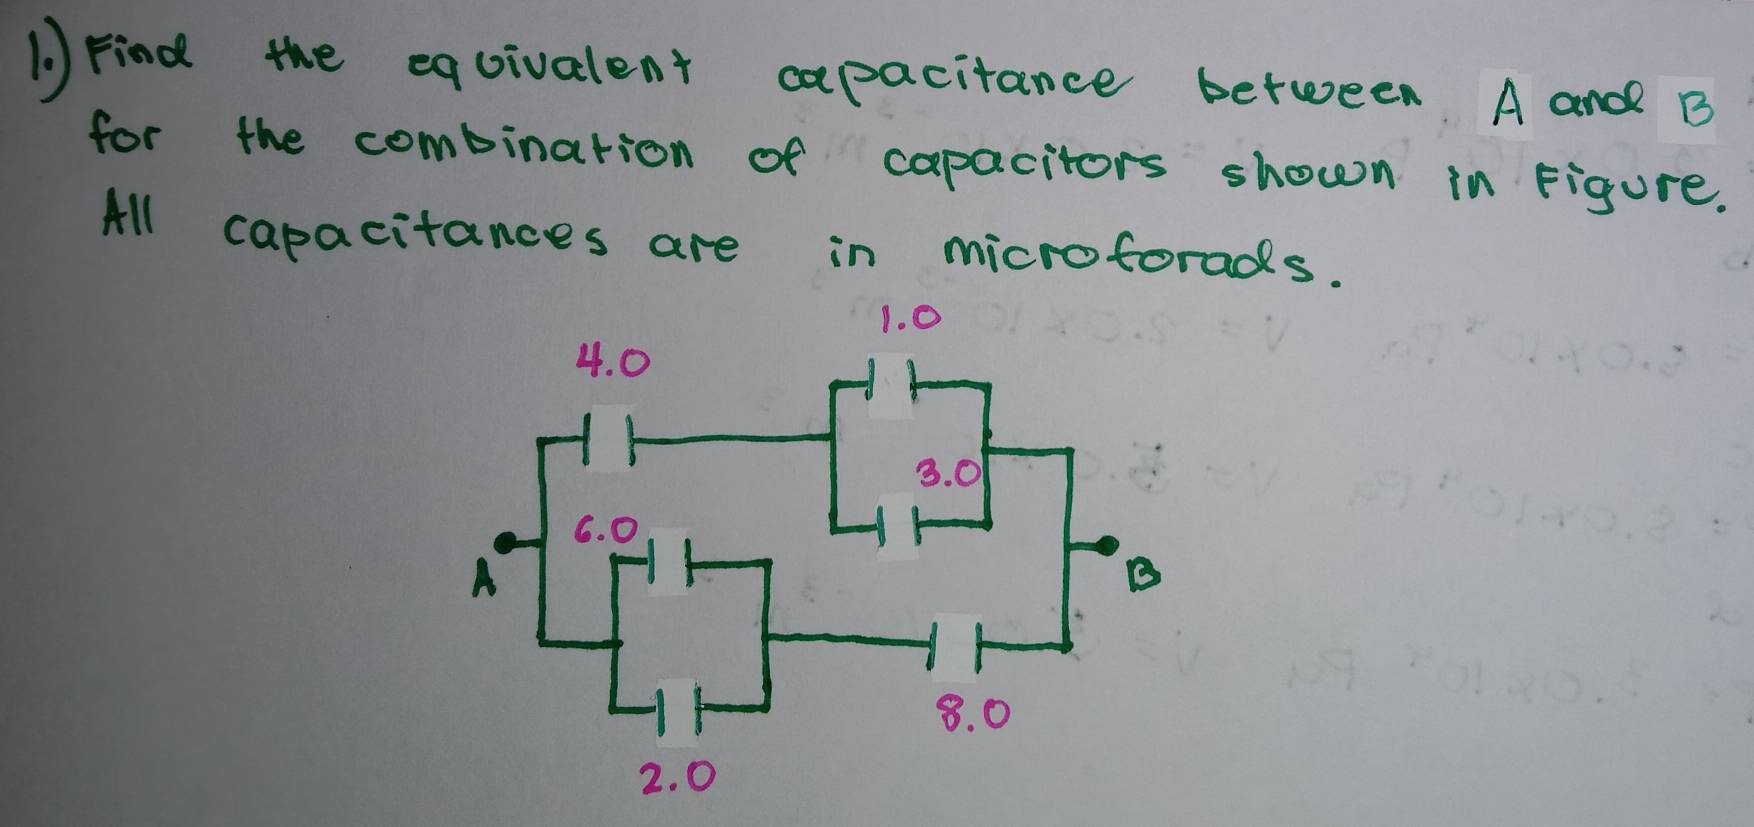 1.) Find the equivalent capacitance between A and B
for the combination of capacitors shown in Figure.
All capacitances are in microforads.
1.0
4.0
3.0
6.0
A
B
8.0
2.0